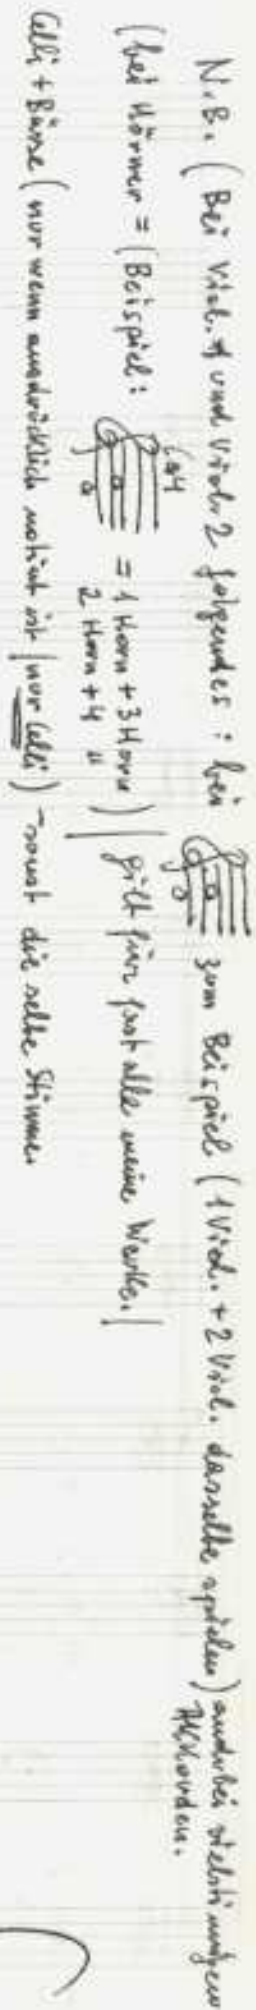 N.B. (Bei Viol. 1 und Viol. 2 folgendes: bei zum Beispiel (1 Viol. + 2 Viol. dasselbe spielen) auch bei vielstimmigen
Akkorden.
(bei Hörner = (Beispiel: 1 Horn + 3 Horn
2 Horn + 4 " ) | gilt für fast alle meine Werke. |
Celli + Bässe (nur wenn ausdrücklich notiert ist (nur Celli) - sonst die selbe Stimme.